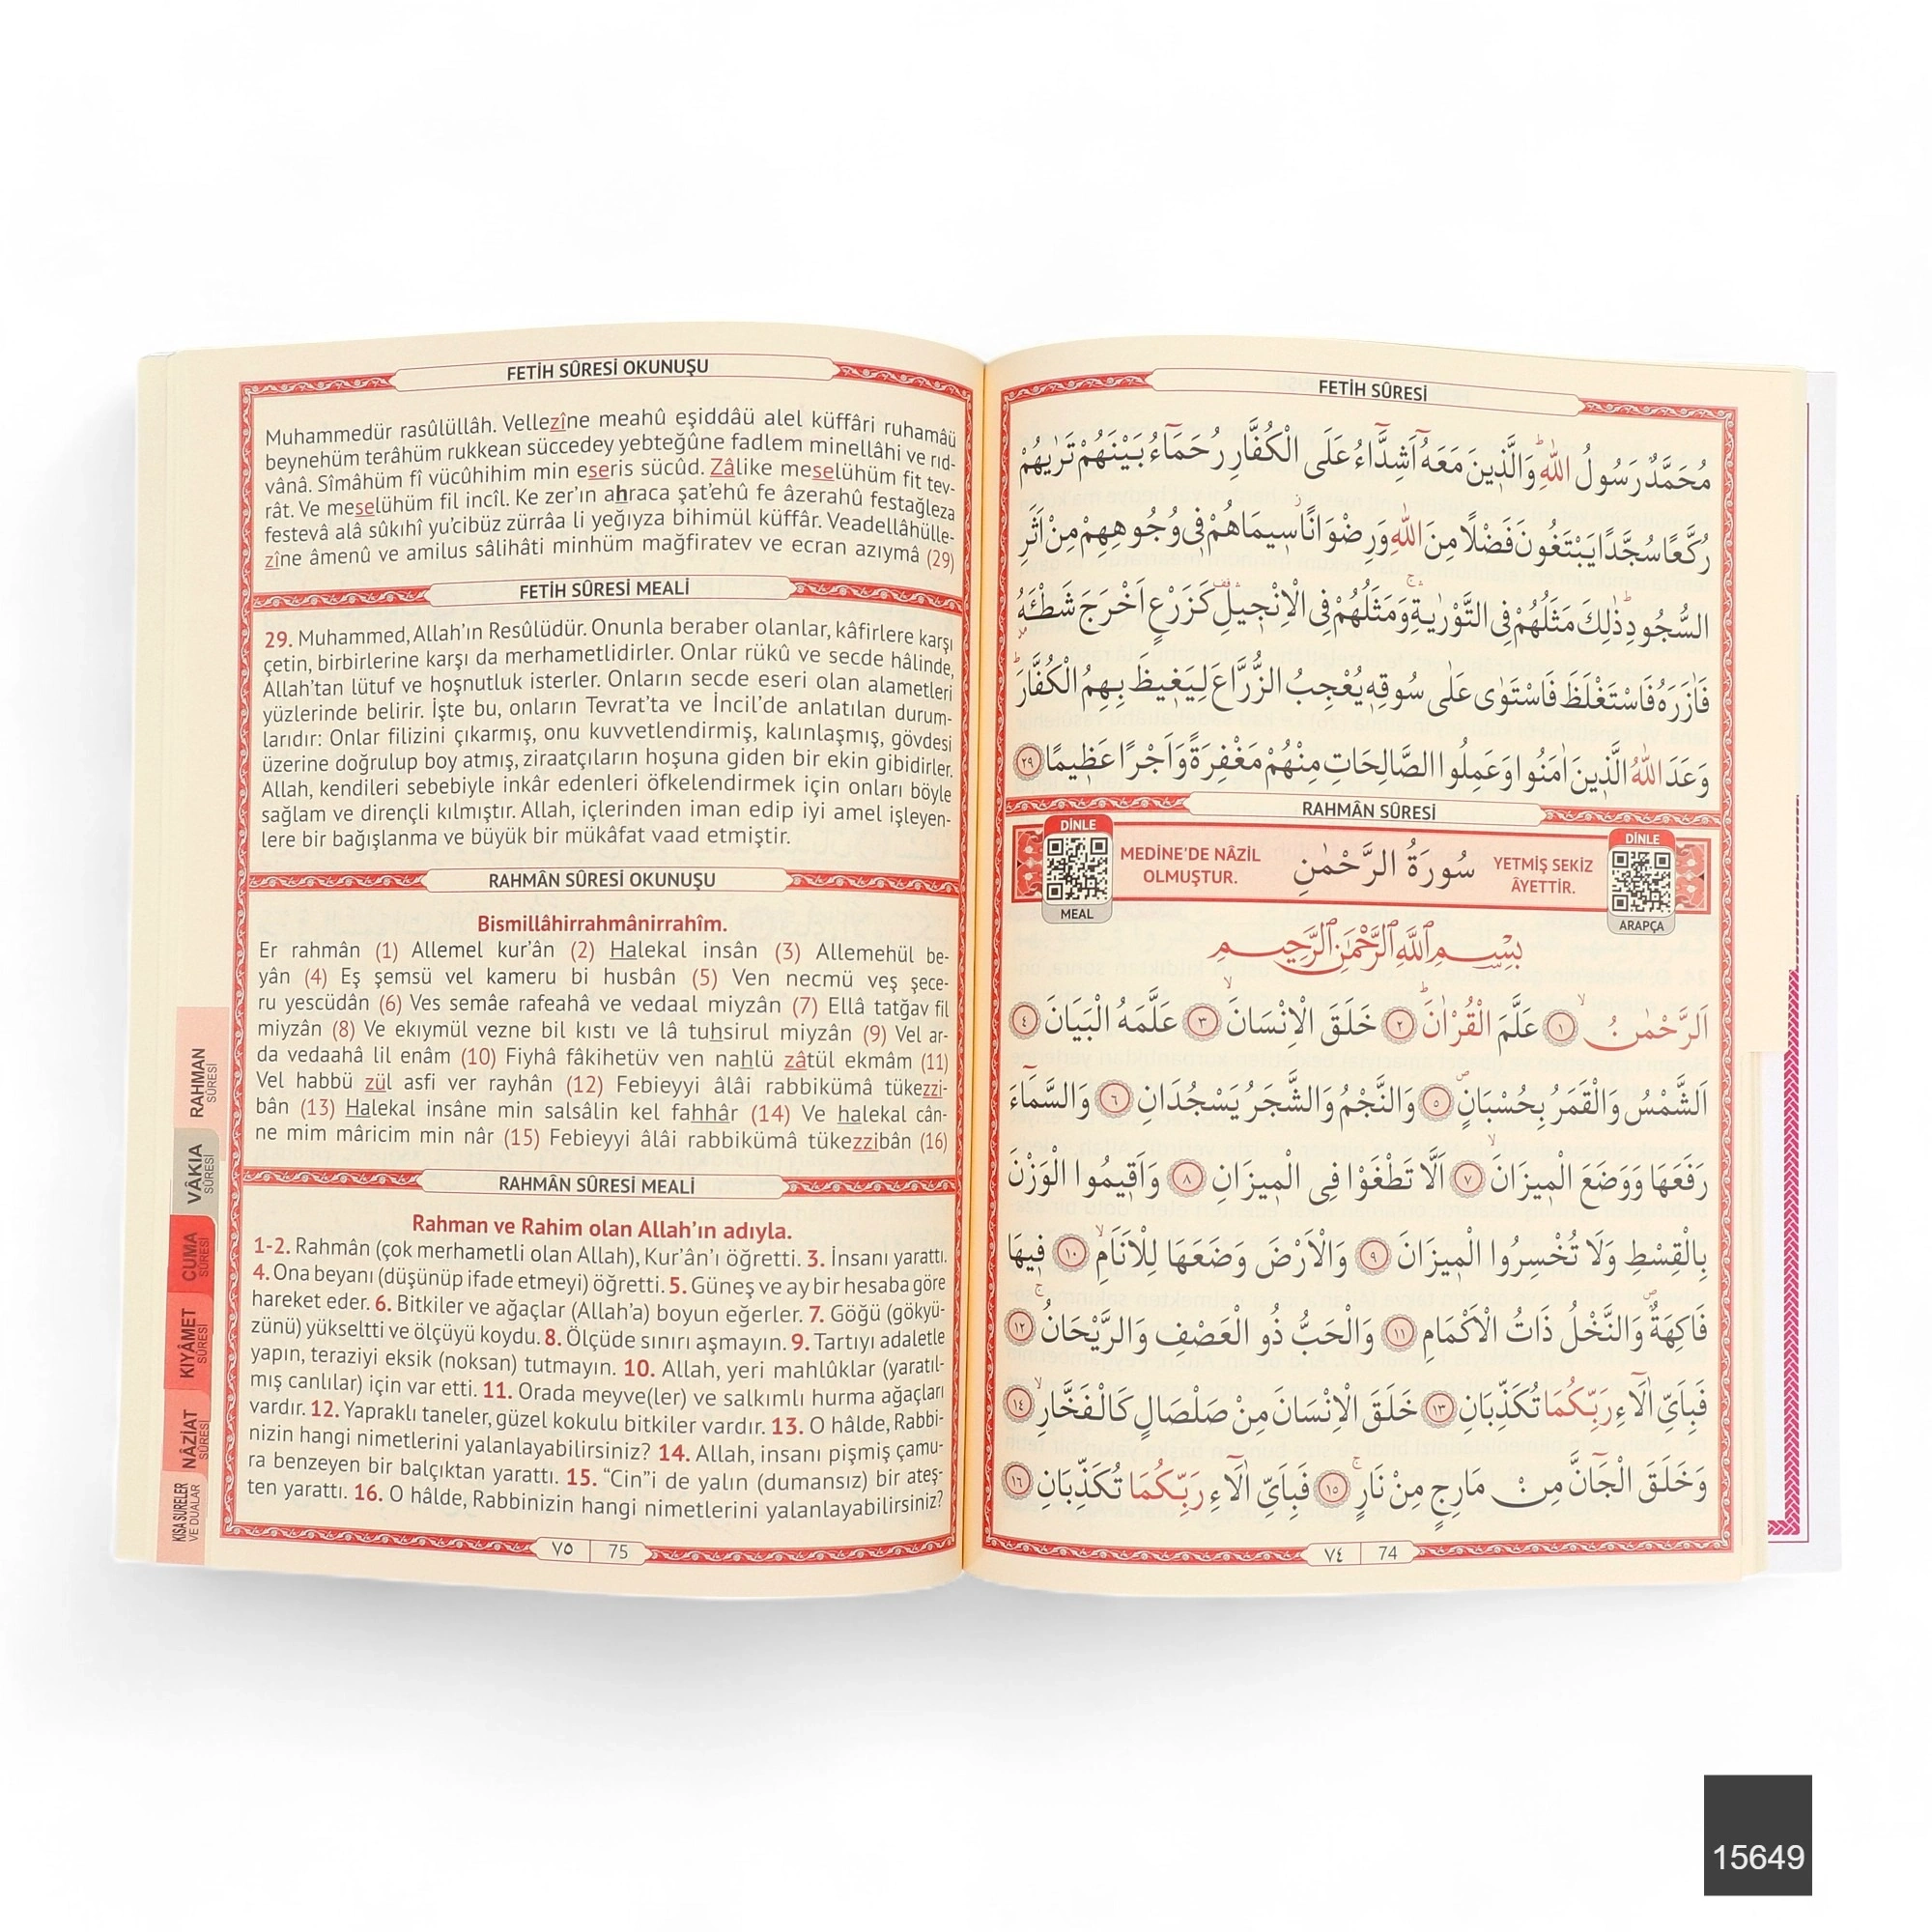 FETİH SÛRESİ
مُحَمَّدٌ رَسُولُ اللّٰهِ وَالَّذ۪ينَ مَعَهُٓ اَشِدَّٓاءُ عَلَى الْكُفَّارِ رُحَمَٓاءُ بَيْنَهُمْ تَرٰيهُمْ
رُكَّعًا سُجَّدًا يَبْتَغُونَ فَضْلًا مِنَ اللّٰهِ وَرِضْوَانًا س۪يمَاهُمْ ف۪ي وُجُوهِهِمْ مِنْ اَثَرِ
السُّجُودِ ذٰلِكَ مَثَلُهُمْ فِي التَّوْرٰيةِ وَمَثَلُهُمْ فِي الْاِنْج۪يلِ كَزَرْعٍ اَخْرَجَ شَطْـَٔهُ
فَاٰزَرَهُ فَاسْتَغْلَظَ فَاسْتَوٰى عَلٰى سُوقِه۪ يُعْجِبُ الزُّرَّاعَ لِيَغ۪يظَ بِهِمُ الْكُفَّارَ
وَعَدَ اللّٰهُ الَّذ۪ينَ اٰمَنُوا وَعَمِلُوا الصَّالِحَاتِ مِنْهُمْ مَغْفِرَةً وَاَجْرًا عَظ۪يمًا ٢٩
RAHMÂN SÛRESİ
DİNLE
ARAPÇA
YETMİŞ SEKİZ
ÂYETTİR.
سُورَةُ الرَّحْمٰنِ
MEDİNE'DE NÂZİL
OLMUŞTUR.
DİNLE
MEAL
بِسْمِ اللّٰهِ الرَّحْمٰنِ الرَّحِيمِ
اَلرَّحْمٰنُ ١ عَلَّمَ الْقُرْاٰنَ ٢ خَلَقَ الْاِنْسَانَ ٣ عَلَّمَهُ الْبَيَانَ ٤
اَلشَّمْسُ وَالْقَمَرُ بِحُسْبَانٍ ٥ وَالنَّجْمُ وَالشَّجَرُ يَسْجُدَانِ ٦ وَالسَّمَٓاءَ
رَفَعَهَا وَوَضَعَ الْم۪يزَانَ ٧ اَلَّا تَطْغَوْا فِي الْم۪يزَانِ ٨ وَاَق۪يمُوا الْوَزْنَ
بِالْقِسْطِ وَلَا تُخْسِرُوا الْم۪يزَانَ ٩ وَالْاَرْضَ وَضَعَهَا لِلْاَنَامِ ١٠ ف۪يهَا
فَاكِهَةٌ وَالنَّخْلُ ذَاتُ الْاَكْمَامِ ١١ وَالْحَبُّ ذُو الْعَصْفِ وَالرَّيْحَانُ ١٢
فَبِاَيِّ اٰلَٓاءِ رَبِّكُمَا تُكَذِّبَانِ ١٣ خَلَقَ الْاِنْسَانَ مِنْ صَلْصَالٍ كَالْفَخَّارِ ١٤
وَخَلَقَ الْجَٓانَّ مِنْ مَارِجٍ مِنْ نَارٍ ١٥ فَبِاَيِّ اٰلَٓاءِ رَبِّكُمَا تُكَذِّبَانِ ١٦
٧٤ 74
FETİH SÛRESİ OKUNUŞU
Muhammedür rasûlüllâh. Vellezîne meahû eşiddâü alel küffâri ruhamâü
beynehüm terâhüm rukkean süccedey yebteğûne fadlem minellâhi ve rıd-
vânâ. Sîmâhüm fî vücûhihim min eseris sücûd. Zâlike meselühüm fit tev-
rât. Ve meselühüm fil incîl. Ke zer’ın ahraca şat’ehû fe âzerahû festağleza
festevâ alâ sûkıhî yu’cibüz zürrâa li yeğıyza bihimül küffâr. Veadellâhülle-
zîne âmenû ve amilus sâlihâti minhüm mağfiratev ve ecran azıymâ (29)
FETİH SÛRESİ MEALİ
29. Muhammed, Allah’ın Resûlüdür. Onunla beraber olanlar, kâfirlere karşı
çetin, birbirlerine karşı da merhametlidirler. Onlar rükû ve secde hâlinde,
Allah’tan lütuf ve hoşnutluk isterler. Onların secde eseri olan alametleri
yüzlerinde belirir. İşte bu, onların Tevrat’ta ve İncil’de anlatılan durum-
larıdır: Onlar filizini çıkarmış, onu kuvvetlendirmiş, kalınlaşmış, gövdesi
üzerine doğrulup boy atmış, ziraatçıların hoşuna giden bir ekin gibidirler.
Allah, kendileri sebebiyle inkâr edenleri öfkelendirmek için onları böyle
sağlam ve dirençli kılmıştır. Allah, içlerinden iman edip iyi amel işleyen-
lere bir bağışlanma ve büyük bir mükâfat vaad etmiştir.
RAHMÂN SÛRESİ OKUNUŞU
Bismillâhirrahmânirrahîm.
Er rahmân (1) Allemel kur’ân (2) Halekal insân (3) Allemehül be-
yân (4) Eş şemsü vel kameru bi husbân (5) Ven necmü veş şece-
ru yescüdân (6) Ves semâe rafeahâ ve vedaal miyzân (7) Ellâ tatğav fil
miyzân (8) Ve ekıymül vezne bil kıstı ve lâ tuhsirul miyzân (9) Vel ar-
da vedaahâ lil enâm (10) Fiyhâ fâkihetüv ven nahlü zâtül ekmâm (11)
Vel habbü zül asfi ver rayhân (12) Febieyyi âlâi rabbikümâ tükezzi-
bân (13) Halekal insâne min salsâlin kel fahhâr (14) Ve halekal cân-
ne mim mâricim min nâr (15) Febieyyi âlâi rabbikümâ tükezzibân (16)
RAHMÂN SÛRESİ MEALİ
Rahman ve Rahim olan Allah’ın adıyla.
1-2. Rahmân (çok merhametli olan Allah), Kur’ân’ı öğretti. 3. İnsanı yarattı.
4. Ona beyanı (düşünüp ifade etmeyi) öğretti. 5. Güneş ve ay bir hesaba göre
hareket eder. 6. Bitkiler ve ağaçlar (Allah’a) boyun eğerler. 7. Göğü (gökyü-
zünü) yükseltti ve ölçüyü koydu. 8. Ölçüde sınırı aşmayın. 9. Tartıyı adaletle
yapın, teraziyi eksik (noksan) tutmayın. 10. Allah, yeri mahlûklar (yaratıl-
mış canlılar) için var etti. 11. Orada meyve(ler) ve salkımlı hurma ağaçları
vardır. 12. Yapraklı taneler, güzel kokulu bitkiler vardır. 13. O hâlde, Rabbi-
nizin hangi nimetlerini yalanlayabilirsiniz? 14. Allah, insanı pişmiş çamu-
ra benzeyen bir balçıktan yarattı. 15. “Cin”i de yalın (dumansız) bir ateş-
ten yarattı. 16. O hâlde, Rabbinizin hangi nimetlerini yalanlayabilirsiniz?
٧٥ 75
RAHMAN
SÛRESİ
VÂKIA
SÛRESİ
CUMA
SÛRESİ
KIYÂMET
SÛRESİ
NÂZİAT
SÛRESİ
KISA SURELER
VE DUALAR
15649